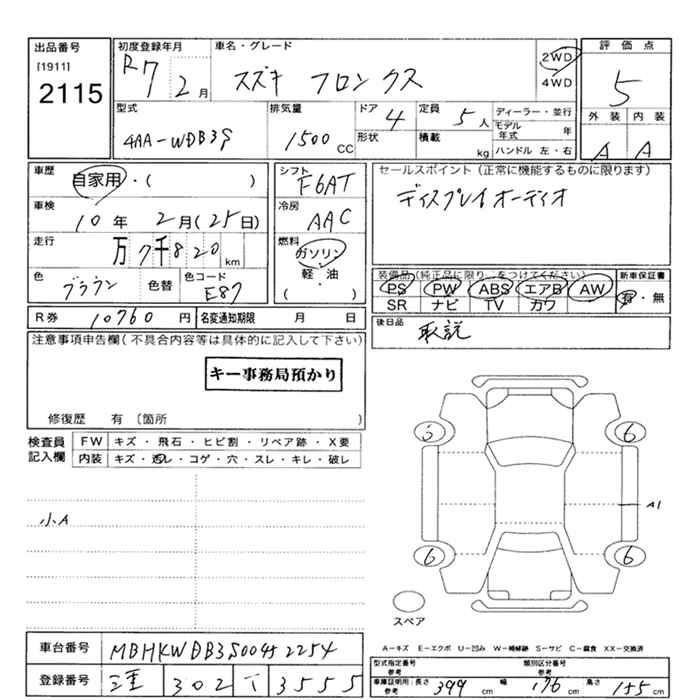 出品番号
[1911]
2115
初度登録年月
R7 2月
車名・グレード
スズキ フロンクス
2WD
4WD
評価点
5
外装 内装
A A
型式
4AA-WDB3S
排気量
1500 CC
ドア 4
形状
定員 5人
積載 kg
ディーラー・並行
モデル年式 年
ハンドル 左・右
車歴
自家用・( )
車検
10年 2月(25日)
走行
万 7千820 km
色
ブラウン
色替
色コード
E87
シフト
F6AT
冷房
AAC
燃料
ガソリン
軽・油
( )
セールスポイント(正常に機能するものに限ります)
ディスプレイオーディオ
装備品(純正品に限り をつけてください)
PS PW ABS エアB AW
SR ナビ TV カワ
新車保証書
有・無
R券 10760 円
名変通知期限 月 日
後日品
取説
注意事項申告欄(不具合内容等は具体的に記入して下さい)
キー事務局預かり
修復歴 有 〔箇所 )
検査員記入欄
FW キズ・飛石・ヒビ割・リペア跡・X要
内装 キズ・汚レ・コゲ・穴・スレ・キレ・破レ
小A
6
6
A1
6
6
スペア
A−キズ E−エクボ U−凹み W−補修跡 S−サビ C−腐食 XX−交換済
車台番号 MBHKWDB3S00452254
登録番号 三重 302 て 3555
型式指定番号
参考
類別区分番号
参考
車庫証明用 長さ 399 cm 幅 176 cm 高さ 155 cm
参考 参考